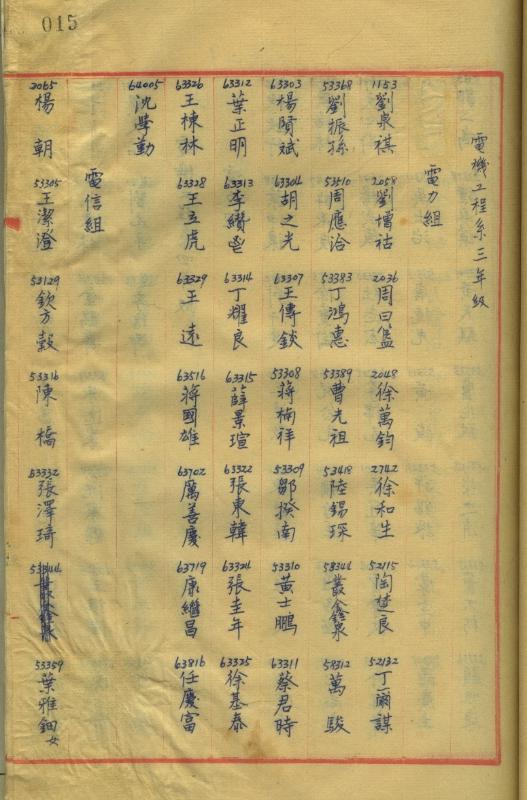 015
電機工程系三年級
電力組
1153 劉泉祺 2058 劉增祜 2036 周曰籃 2048 徐萬鈞 2742 徐和生 52115 陶楚良 52132 丁爾謀
53368 劉振孫 53510 周應洽 53383 丁鴻惠 53389 曹光祖 53418 陸錫琛 58344 叢鑫泉 58312 萬駿
63303 楊賢斌 63304 胡之光 63307 王傳錟 53308 蔣楠祥 53309 鄒揆南 53310 黃士鵬 63311 蔡君時
63312 葉正明 63313 李纘鬯 63314 丁耀良 63315 薛景瑄 63322 張東韓 63324 張圭年 63325 徐基泰
63326 王棟林 63328 王立虎 63329 王遠 63516 蔣國雄 63702 厲善慶 63719 康繼昌 63816 任慶富
64005 沈學勤
電信組
2065 楊朝 53305 王潔澄 53129 欽方穀 53316 陳橋 53332 張澤琦 53359 葉雅鈿 女